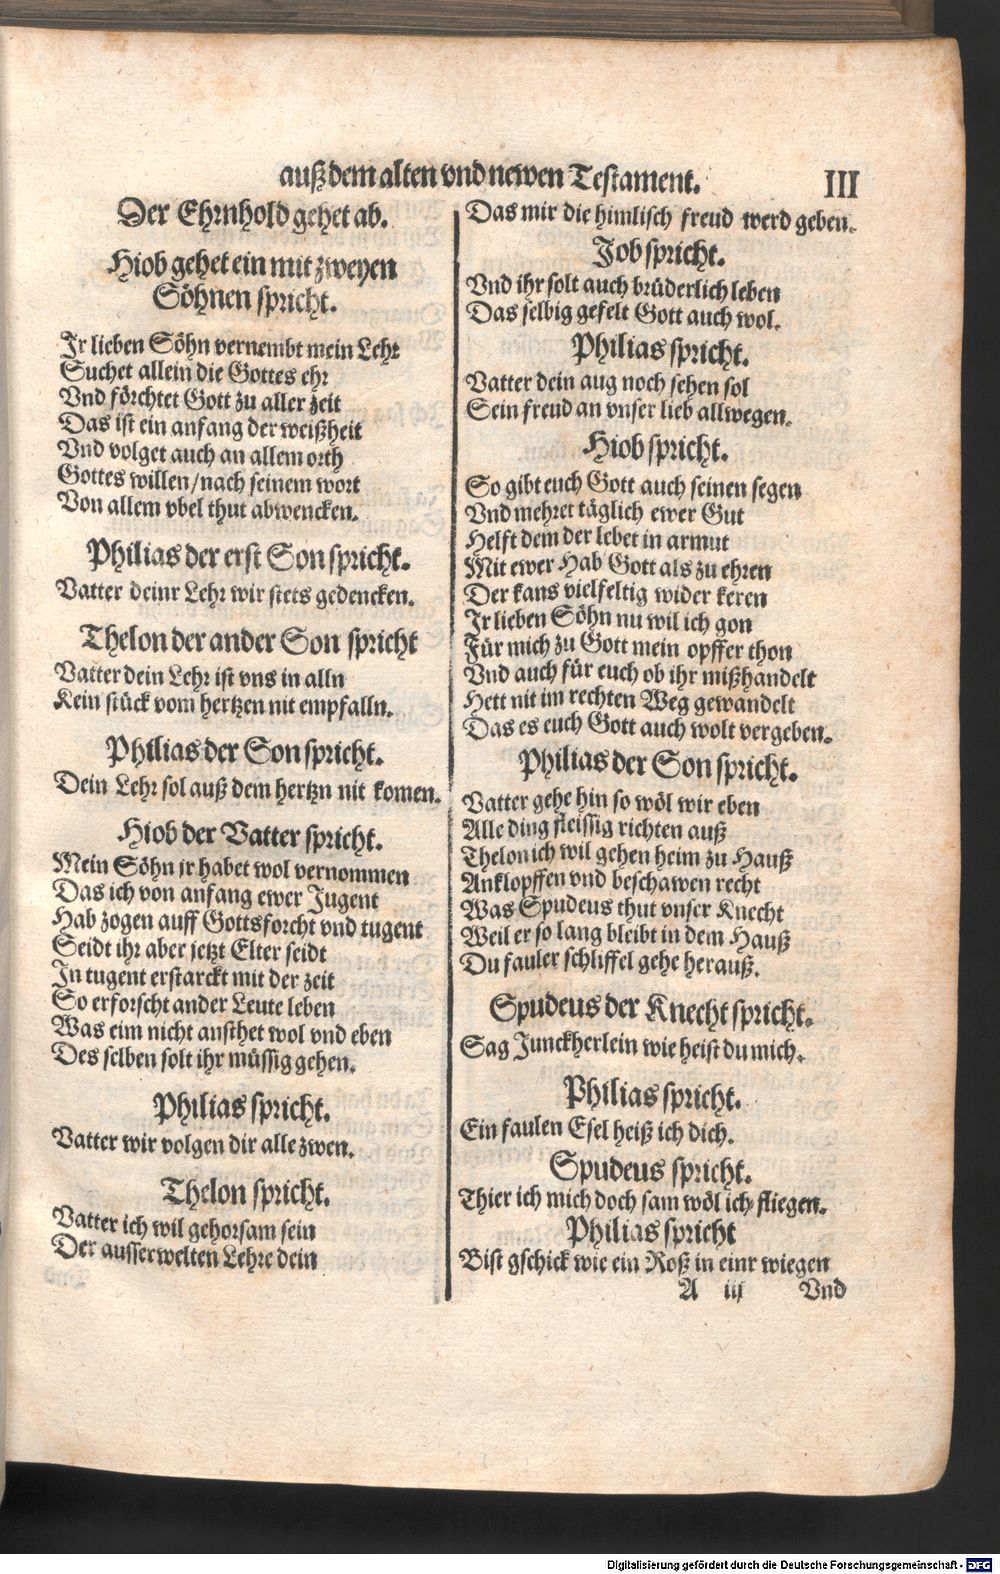 auß dem alten vnd newen Testament. III
Der Ehrnhold gehet ab.
Hiob gehet ein mit zweyen
Söhnen spricht.
Ir lieben Söhn vernembt mein Lehr
Suchet allein die Gottes ehr
Vnd förchtet Gott zu aller zeit
Das ist ein anfang der weißheit
Vnd volget auch an allem orth
Gottes willen/nach seinem wort
Von allem vbel thut abwencken.
Philias der erst Son spricht.
Vatter deinr Lehr wir stets gedencken.
Thelon der ander Son spricht
Vatter dein Lehr ist vns in alln
Kein stück vom hertzen nit empfalln.
Philias der Son spricht.
Dein Lehr sol auß dem hertzn nit komen.
Hiob der Vatter spricht.
Mein Söhn jr habet wol vernommen
Das ich von anfang ewer Jugent
Hab zogen auff Gottsforcht vnd tugent
Seidt ihr aber jetzt Elter seidt
In tugent erstarckt mit der zeit
So erforscht ander Leute leben
Was eim nicht ansthet wol vnd eben
Des selben solt ihr müssig gehen.
Philias spricht.
Vatter wir volgen dir alle zwen.
Thelon spricht.
Vatter ich wil gehorsam sein
Der ausserwelten Lehre dein
Das mir die himlisch freud werd geben.
Job spricht.
Vnd ihr solt auch brüderlich leben
Das selbig gefelt Gott auch wol.
Philias spricht.
Vatter dein aug noch sehen sol
Sein freud an vnser lieb allwegen.
Hiob spricht.
So gibt euch Gott auch seinen segen
Vnd mehret täglich ewer Gut
Helft dem der lebet in armut
Mit ewer Hab Gott als zu ehren
Der kans vielfeltig wider keren
Ir lieben Söhn nu wil ich gon
Für mich zu Gott mein opffer thon
Vnd auch für euch ob ihr mißhandelt
Hett nit im rechten Weg gewandelt
Das es euch Gott auch wolt vergeben.
Philias der Son spricht.
Vatter gehe hin so wöl wir eben
Alle ding fleissig richten auß
Thelon ich wil gehen heim zu Hauß
Anklopffen vnd beschawen recht
Was Spudeus thut vnser Knecht
Weil er so lang bleibt in dem Hauß
Du fauler schliffel gehe herauß.
Spudeus der Knecht spricht.
Sag Junckherlein wie heist du mich.
Philias spricht.
Ein faulen Esel heiß ich dich.
Spudeus spricht.
Thier ich mich doch sam wöl ich fliegen.
Philias spricht
Bist gschick wie ein Roß in einr wiegen
A iij Vnd
Digitalisierung gefördert durch die Deutsche Forschungsgemeinschaft - DFG